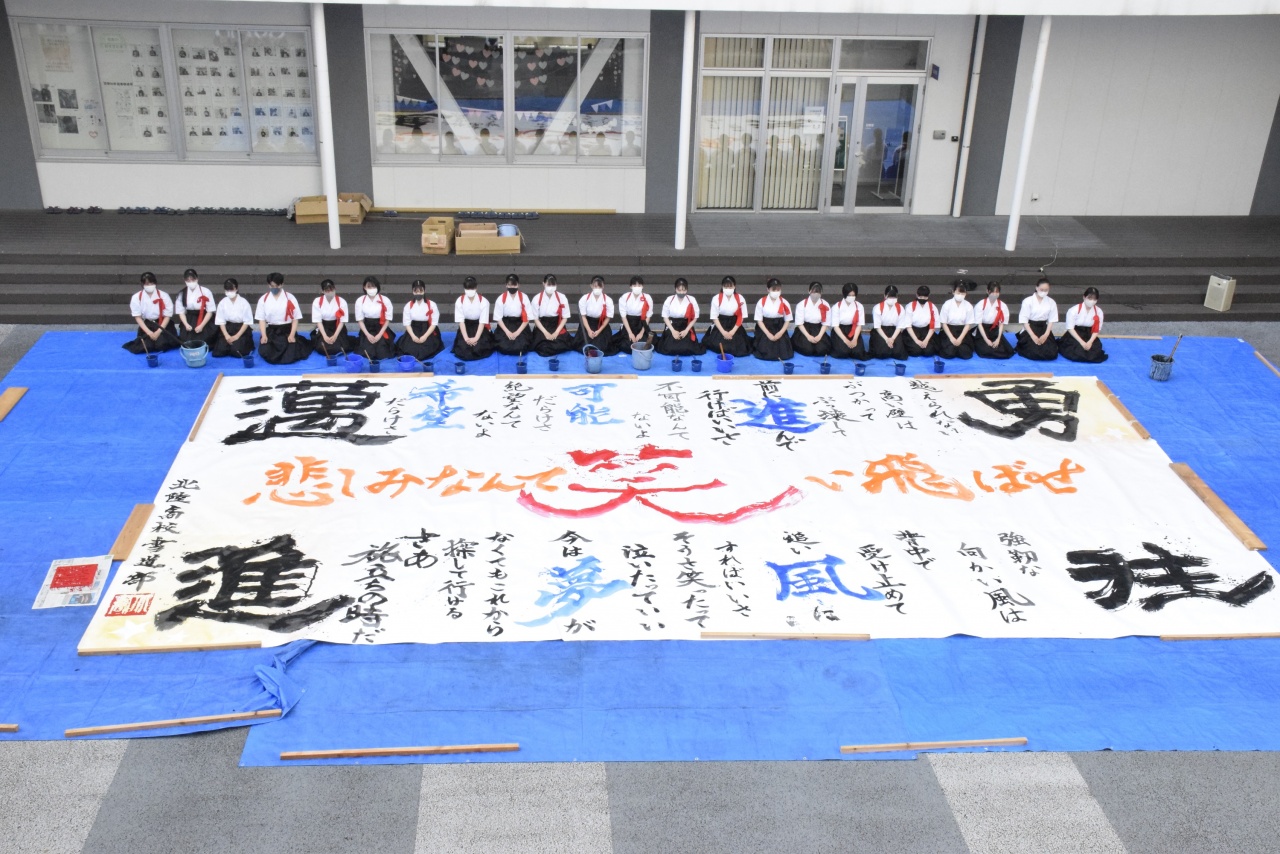 勇往
邁進
越えられない
高い壁は
ぶつかって
ぶっ壊して
前に進んで
行けばいいさ
不可能なんて
ないよ
可能
だらけさ
絶望なんて
ないよ
希望
だらけさ
悲しみなんて笑い飛ばせ
強靭な
向かい風は
背中で
受け止めて
追い
風に
すればいいさ
そうさ笑ったって
泣いたっていい
今は夢が
なくてもこれから
探して行ける
さあ
旅立ちの時だ
北陵高校書道部